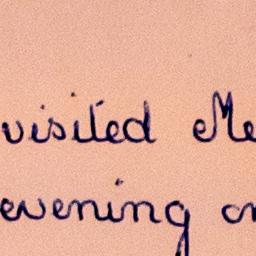 visited Me
evening on